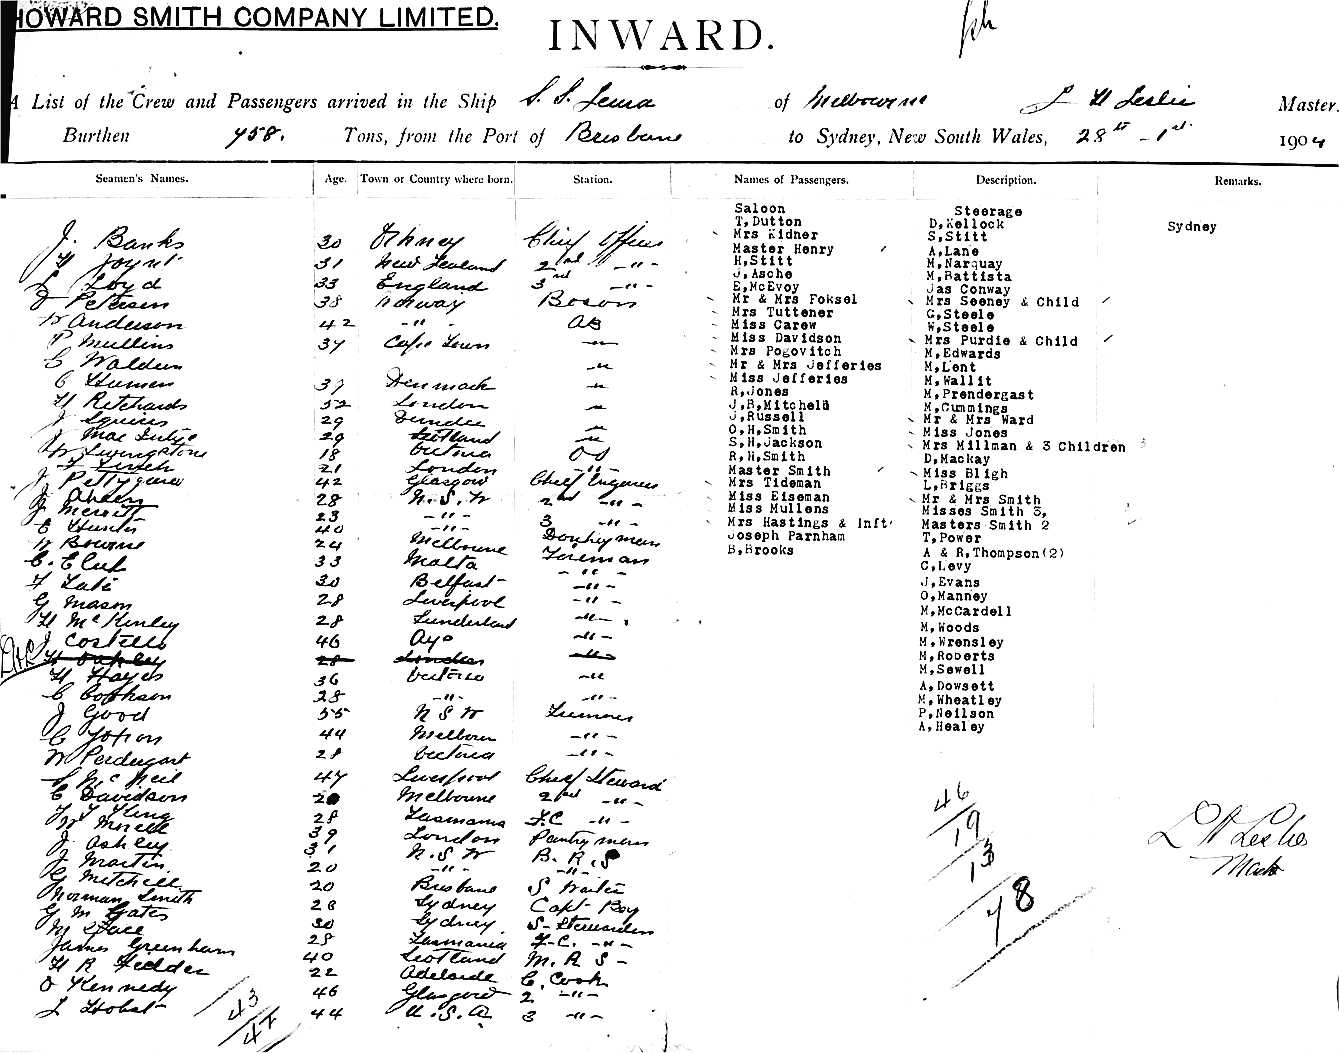 HOWARD SMITH COMPANY LIMITED.
INWARD.
A List of the Crew and Passengers arrived in the Ship S.S. Leura of Melbourne L W Leslie Master.
Burthen 758. Tons, from the Port of Brisbane to Sydney, New South Wales, 28th - 1st 1904
Seamen's Names. Age. Town or Country where born. Station. Names of Passengers. Description. Remarks.
J. Banks 30 Orkney Chief Officer
31 New Zealand 2nd -"-
Loyd 33 England 3rd -"-
Petersen 38 Norway Boson
Anderson 42 -"- AB
P. Mullins 37 Cape Town -"-
C Walden -"-
C 37 Denmark -"-
H Ritchards 52 London -"-
J Squires 29 Dundee -"-
J Mac 29 Scotland -"-
W Livingstone 18 Victoria OS
Finch 21 London -"-
J Pettygrew 42 Glasgow Chief Engineer
J Ahern 28 N.S.W 2nd -"-
J Merritt 23 -"- 3 -"-
E Hunter 40 -"- Donkeyman
W Bourne 24 Melbourne Fireman
C. 33 Malta -"-
30 Belfast -"-
G Mason 28 Liverpool -"-
H McKinley 28 Sunderland -"-
J Costello 46 Ayr -"-
H Oakley 28 London -"-
H Hayes 36 Victoria -"-
C Cookson 28 -"- -"-
J Good 55 N S W Trimmer
C 44 Melbourne -"-
W Pendergast 28 Victoria -"-
McNeil 47 Liverpool Chief Steward
C Davidson 20 Melbourne 2nd -"-
King 28 Tasmania F.C -"-
W Morell 39 London Pantryman
J Ashley 31 N.S.W B.R.S
J Martin 20 -"- -"-
G Mitchell 20 Brisbane S Waiter
Norman Smith 28 Sydney Capt Boy
G M Gates 30 Sydney S-Stewardess
M 28 Tasmania F-C. -"-
James Greenham 40 Scotland M.R S -
H R Fidden 22 Adelaide C. Cook
O Kennedy 46 Glasgow 2 -"-
L Hobst 44 U.S.A 3 -"-
43
47
Saloon
T,Dutton
Mrs Kidner
Master Henry
H,Stitt
J,Asche
E,McEvoy
Mr & Mrs Foksel
Mrs Tuttener
Miss Carew
Miss Davidson
Mrs Pogovitch
Mr & Mrs Jefferies
Miss Jefferies
R,Jones
J,B,Mitchell
J,Russell
O,H,Smith
S,H,Jackson
R,H,Smith
Master Smith
Mrs Tideman
Miss Eiseman
Miss Mullens
Mrs Hastings & Inft
Joseph Parnham
B,Brooks
Steerage
D,Kellock
S,Stitt
A,Lane
M,Narquay
M,Battista
Jas Conway
Mrs Seeney & Child
G,Steele
W,Steele
Mrs Purdie & Child
M,Edwards
M,Lent
M,Wallit
M,Prendergast
M,Cummings
Mr & Mrs Ward
Miss Jones
Mrs Millman & 3 Children
D,Mackay
Miss Bligh
L,Briggs
Mr & Mrs Smith
Misses Smith 3,
Masters Smith 2
T,Power
A & R,Thompson(2)
C,Levy
J,Evans
O,Manney
M,McCardell
M,Woods
M,Wrensley
M,Roberts
M,Sewell
A,Dowsett
M,Wheatley
P,Neilson
A,Healey
Sydney
46
19
13
78
L W Leslie
Master